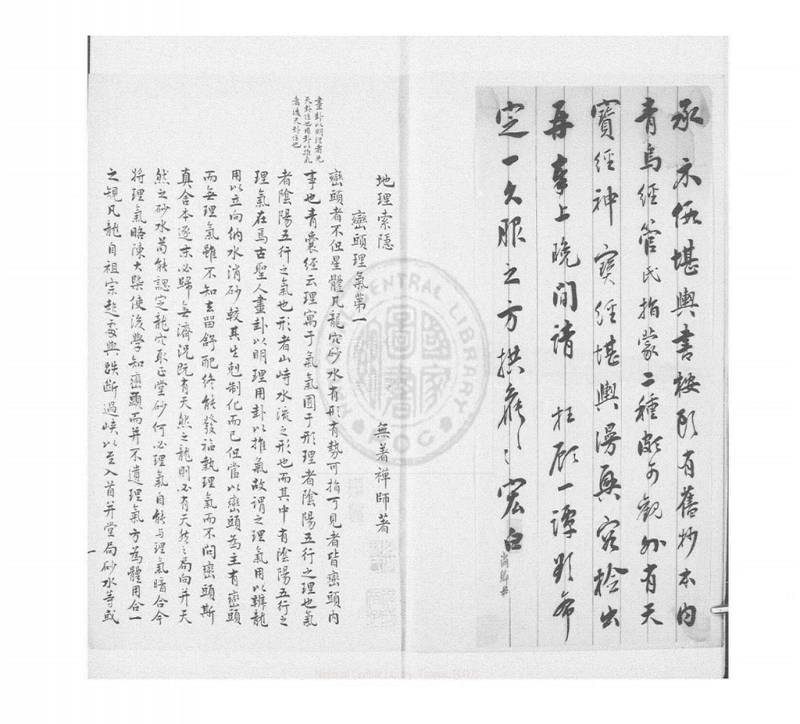 承示假堪輿書按頭有舊抄本內
青烏經管氏指蒙二種頗可觀外有天
寶經神寶經堪輿漫興容撿出
再奉上晚間請 枉顧一譚盼希
定一久服之方拱 宏白
地理索隱
無著禪師著
巒頭理氣第一
巒頭者不但星體凡龍穴砂水有形有勢可指可見者皆巒頭內
事也青囊經云理寓于氣氣囿于形理者陰陽五行之理也氣
者陰陽五行之氣也形者山峙水流之形也而其中有陰陽五行之
理氣在焉古聖人畫卦以明理用卦以推氣故謂之理氣用以辨龍
用以立向納水消砂較其生剋制化而已但當以巒頭為主有巒頭
而無理氣雖不知去留舒配終能發福執理氣而不問巒頭斯
真舍本逐末必歸無濟況既有天然之龍則必有天然之局向并天
然之砂水苟能認定龍穴取正堂砂何必理氣自能與理氣暗合今
將理氣略陳大槩使後學知巒頭而并不遺理氣方為體用合一
之規凡龍自祖宗起處與跌斷過峽以至入首并堂局砂水等或
畫卦以明理者先
天卦位也用卦以推氣
者後天卦位也
一
國家圖書館
CENTRAL LIBRARY